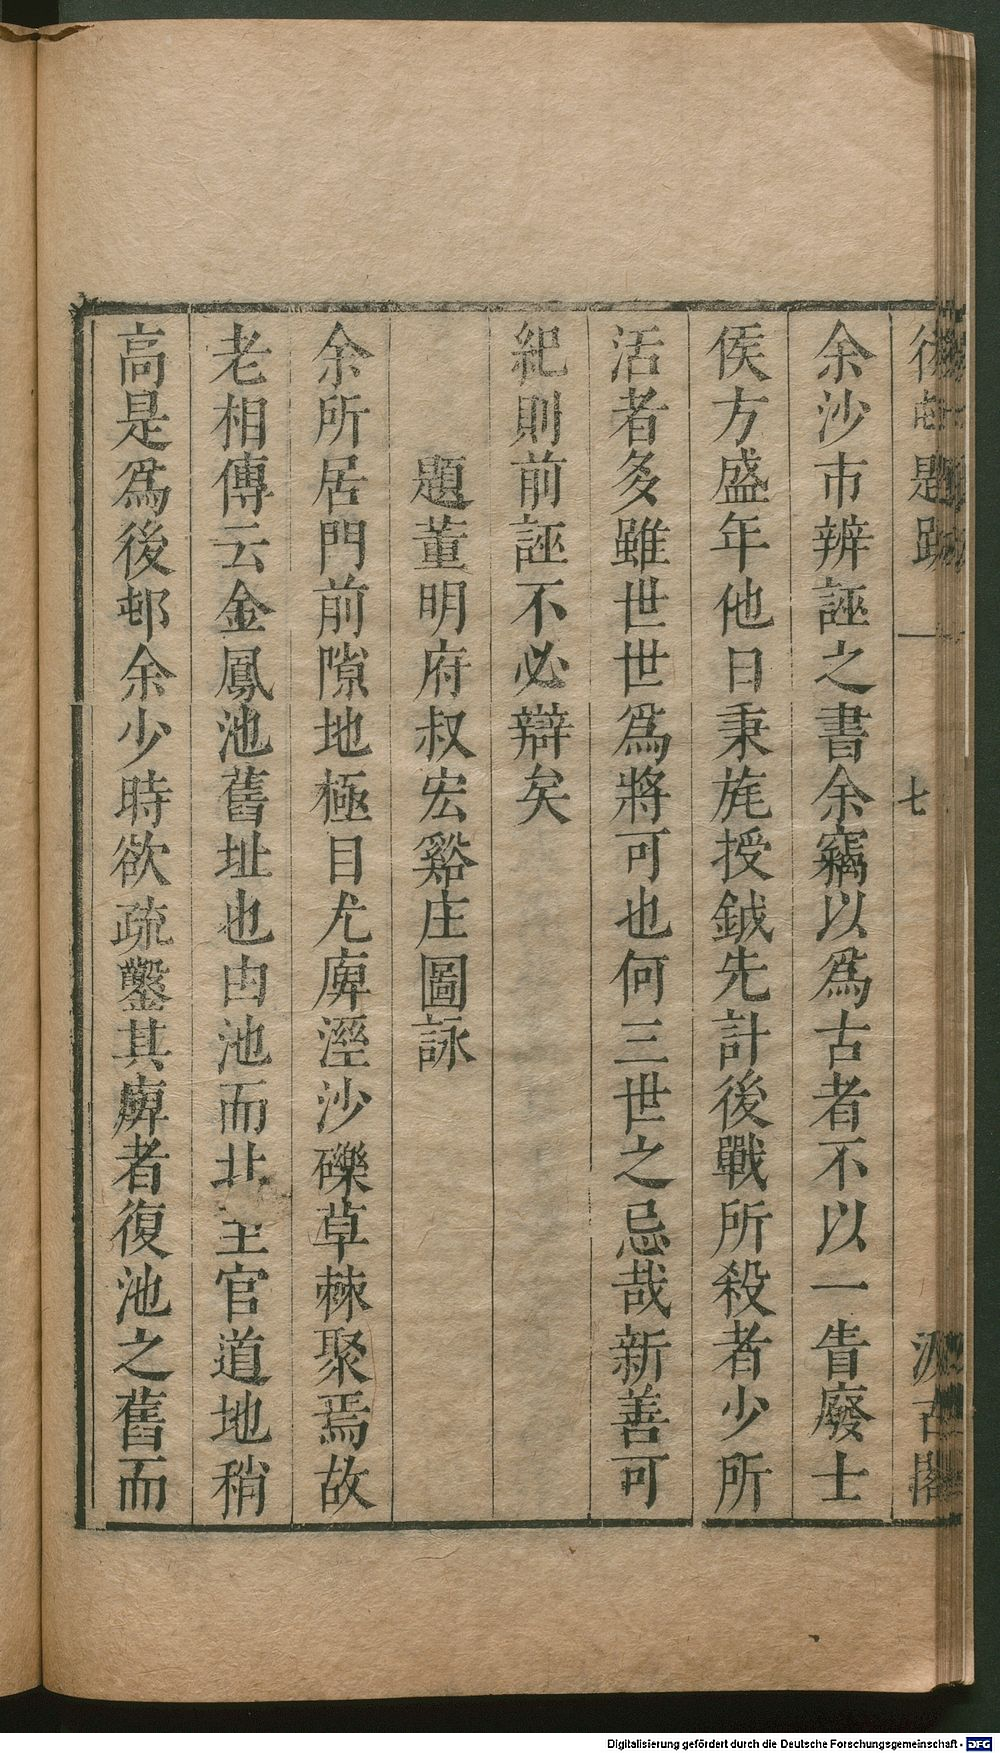 題跋
一
七
汲古閣
余沙市辨誣之書余竊以爲古者不以一眚廢士
侯方盛年他日秉旄授鉞先計後戰所殺者少所
活者多雖世世爲將可也何三世之忌哉新善可
紀則前誣不必辯矣
題董明府叔宏谿庄圖詠
余所居門前隙地極目尤庳溼沙礫草棘聚焉故
老相傳云金鳳池舊址也由池而北至官道地稍
高是爲後邨余少時欲疏鑿其庳者復池之舊而
Digitalisierung gefördert durch die Deutsche Forschungsgemeinschaft - DFG